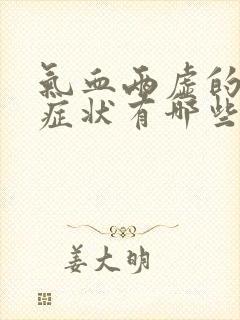 氣血兩虛的
症状有哪些
姜大明